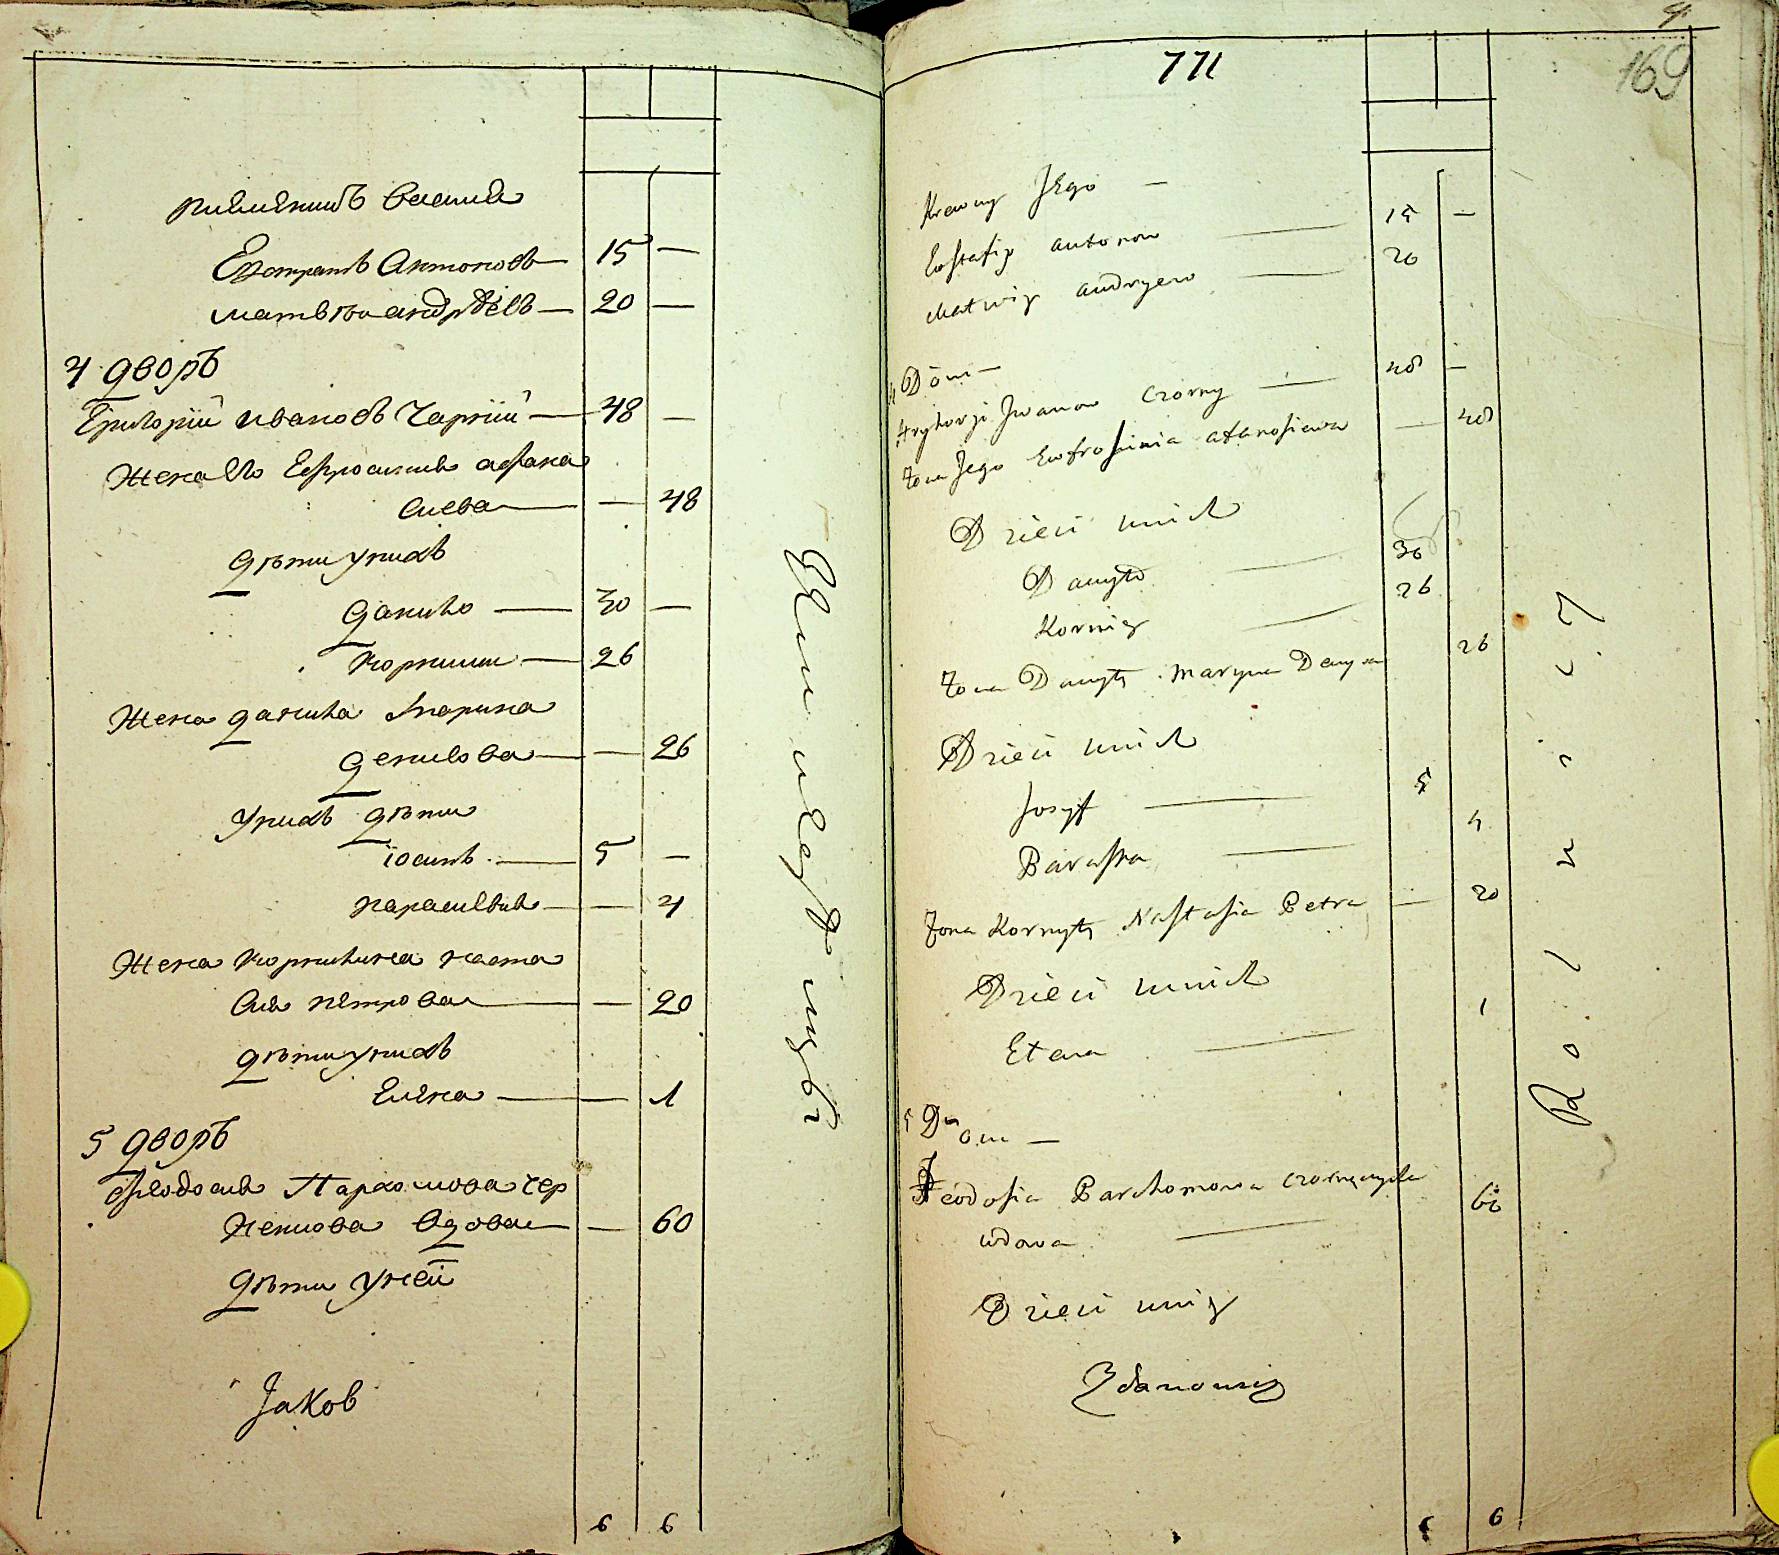 племенникъ Василя
Евстратъ Антоновъ — 15 —
Матвѣи Андрѣевъ — 20 —
4 дворъ
Григорій Ивановъ Чарній — 48 —
Жена его Ефросиния Афана
сиева — — 48
Дѣти у нихъ
Данило — 30 —
Корнили — 26
Жена Данила Марина
Денисова — — 26
У нихъ дѣти
Іосипъ — 5 —
Параскевия — — 4
Жена Корнилина Наста
сия Петрова — — 20
Дѣти у нихъ
Елена — — 1
5 дворъ
Феодосия Пархомова Чер
Вдова — — 60
Дѣти у ней
Jakob
6 6
771
169
Krewny Jego —
Eustafiy Antonow — 15 —
Matwiy Andryew — 20
4 Dom —
Hryhorji Jwanow Czorny — 48 —
Żona Jego Eufrosinia Afanosiewa — 48
Dzieci u nich
Danyło — 30
Korniey — 26
Żona Danyły Maryna Denysa 26
Dzieci u nich
Josyf — 5
Paraska — 4
Żona Kornyły Nastasia Petra — 20
Dzieci u nich
Elena — 1
5 Dom —
Feodosia Parchomowa
wdowa — 60
Dzieci u niey
Zdanowicz
6 6
Rolnicy